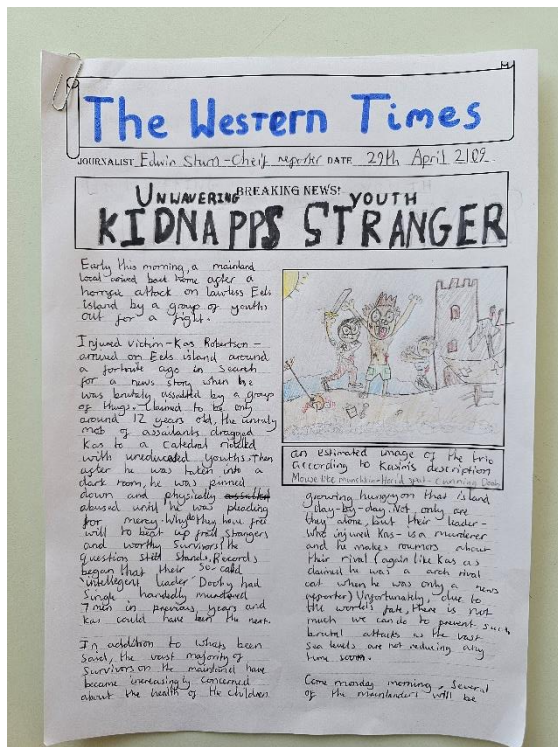 The Western Times
JOURNALIST Edwin Sturn-Cheif reporter DATE 29th April 2109
BREAKING NEWS!
UNWAVERING YOUTH
KIDNAPPS STRANGER
Early this morning, a mainland
local arrived back home after a
horrific attack on lawless Eels
island by a group of youths
out for a fight.
Injured victim-Kas Robertson-
arrived on Eels island around
a fortnite ago in search
for a news story when he
was brutaly assalted by a group
of thugs. Claimed to be only
around 12 years old, the unruly
mob of assailants dragged
Kas to a Catedral riddled
with uneducated youths. Then
after he was taken into a
dark room, he was pinned
down and physically
abused until he was pleading
for mercy. Why do they have free
will to beat up frail strangers
and worthy survivors? The
question still stands. Records
began that their so-called
'intellegent leader' Dooby had
single handedly murdered
7 men in previous years and
Kas could have been the next.
In addition to whats been
said, the vast majority of
Survivors on the mainland have
became increasingly concerned
about the health of the children
an estimated image of the trio
according to Kas's description
Mouse like munchkin-Horrid spat-Cunning Dooby
growing hungry on that island
day-by-day. Not only are
they alone, but their leader-
who injured Kas-is a murderer
and he makes roumors about
their rival (again like Kas as
claimed he was a arch rival
cat when he was only a news
reporter) Unfortunately, due to
the world's fate, there is not
much we can do to prevent such
brutal attacks as the vast
sea levels are not reducing any
time soon.
Come monday morning, several
of the mainlanders will be